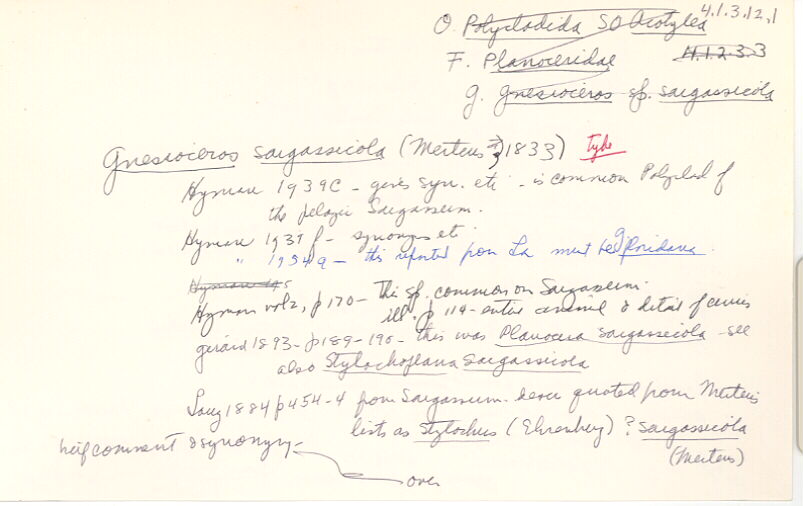 4.1.3.12.1
O. Polycladida SO Acotylea
F. Planoceridae 4.1.2.3.3
g. gnesioceros sp. sargassicola
Gnesioceros sargassicola (Mertens 1833) type
Hyman 1939C - gives syn. etc - is common Polyclad of
the pelagic Sargassum.
Hyman 1939 f - synonyms etc
" 1954a - this reported from La must be g. floridana.
Hyman
Hyman vol 2, p 170 - This sp. common on Sargassum.
ill. p 114 - entire animal & detail of cirrus
girard 1893 - p 189-190 - this was Planocera sargassicola see
also Stylochoplana Sargassicola
Lang 1884 p 454-4 from Sargassum. quoted from Mertens
lists as Stylochus (Ehrenberg) ? sargassicola
(Mertens)
brief comment & synonymy -
over